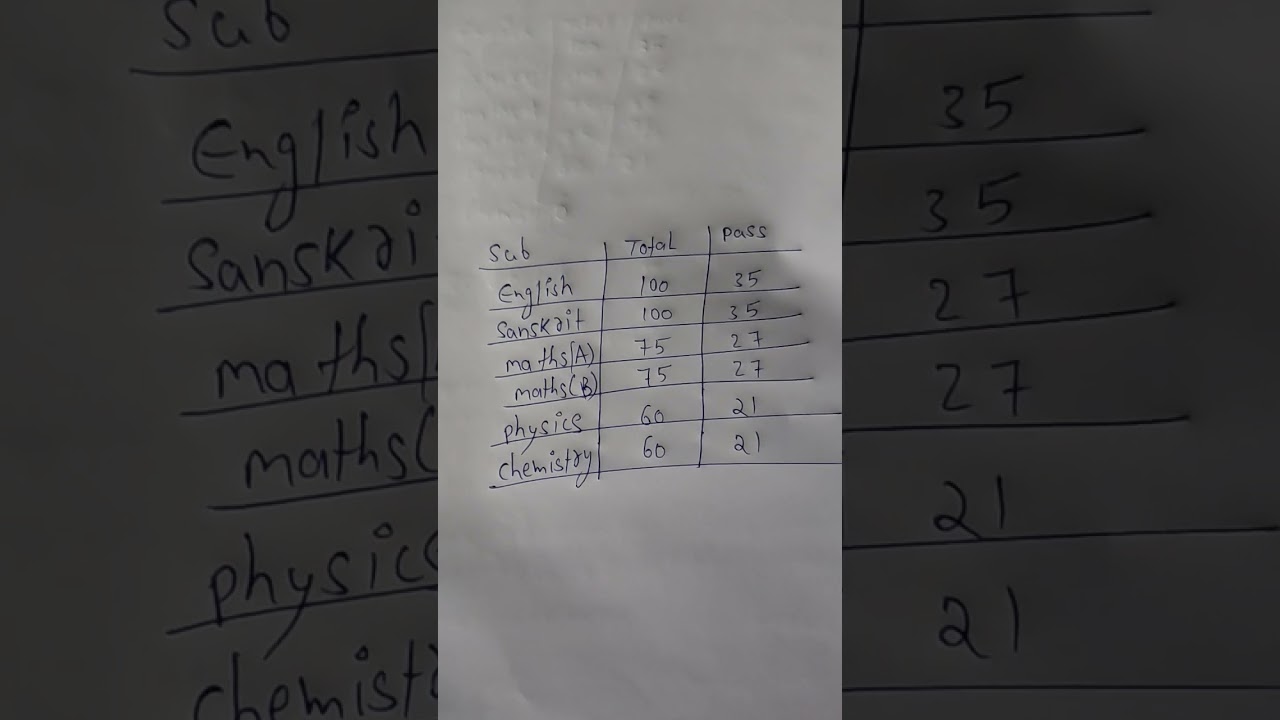 Sub Total pass
English 100 35
Sanskrit 100 35
maths(A) 75 27
maths(B) 75 27
physics 60 21
chemistry 60 21